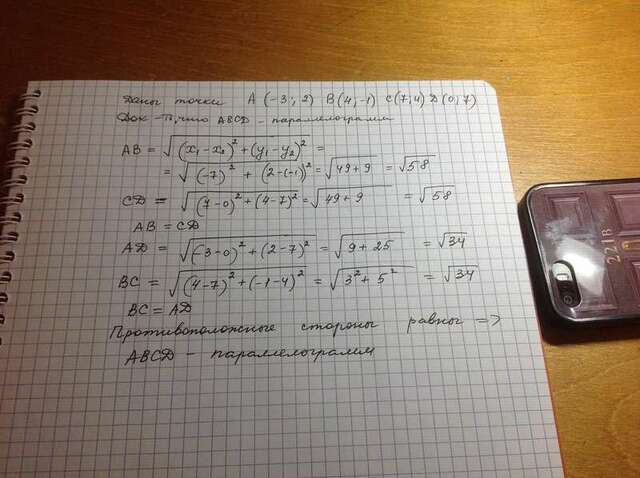 Даны точки A (-3; 2) B(4;-1) C(7;4) D(0;7)
Док-ть, что ABCD - параллелограмм
AB = √((x₁-x₂)² + (y₁-y₂)²) =
= √((-7)² + (2-(-1))²) = √(49+9) = √58
CD = √((7-0)² + (4-7)²) = √(49+9) = √58
AB = CD
AD = √((-3-0)² + (2-7)²) = √(9+25) = √34
BC = √((4-7)² + (-1-4)²) = √(3²+5²) = √34
BC = AD
Противоположные стороны равны =>
ABCD - параллелограмм
221B